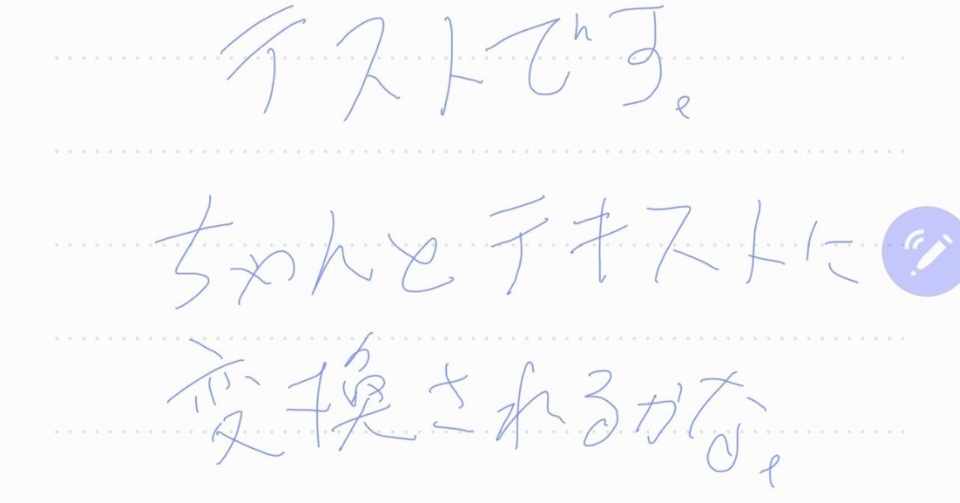 テストです。
ちゃんとテキストに
変換されるかな。